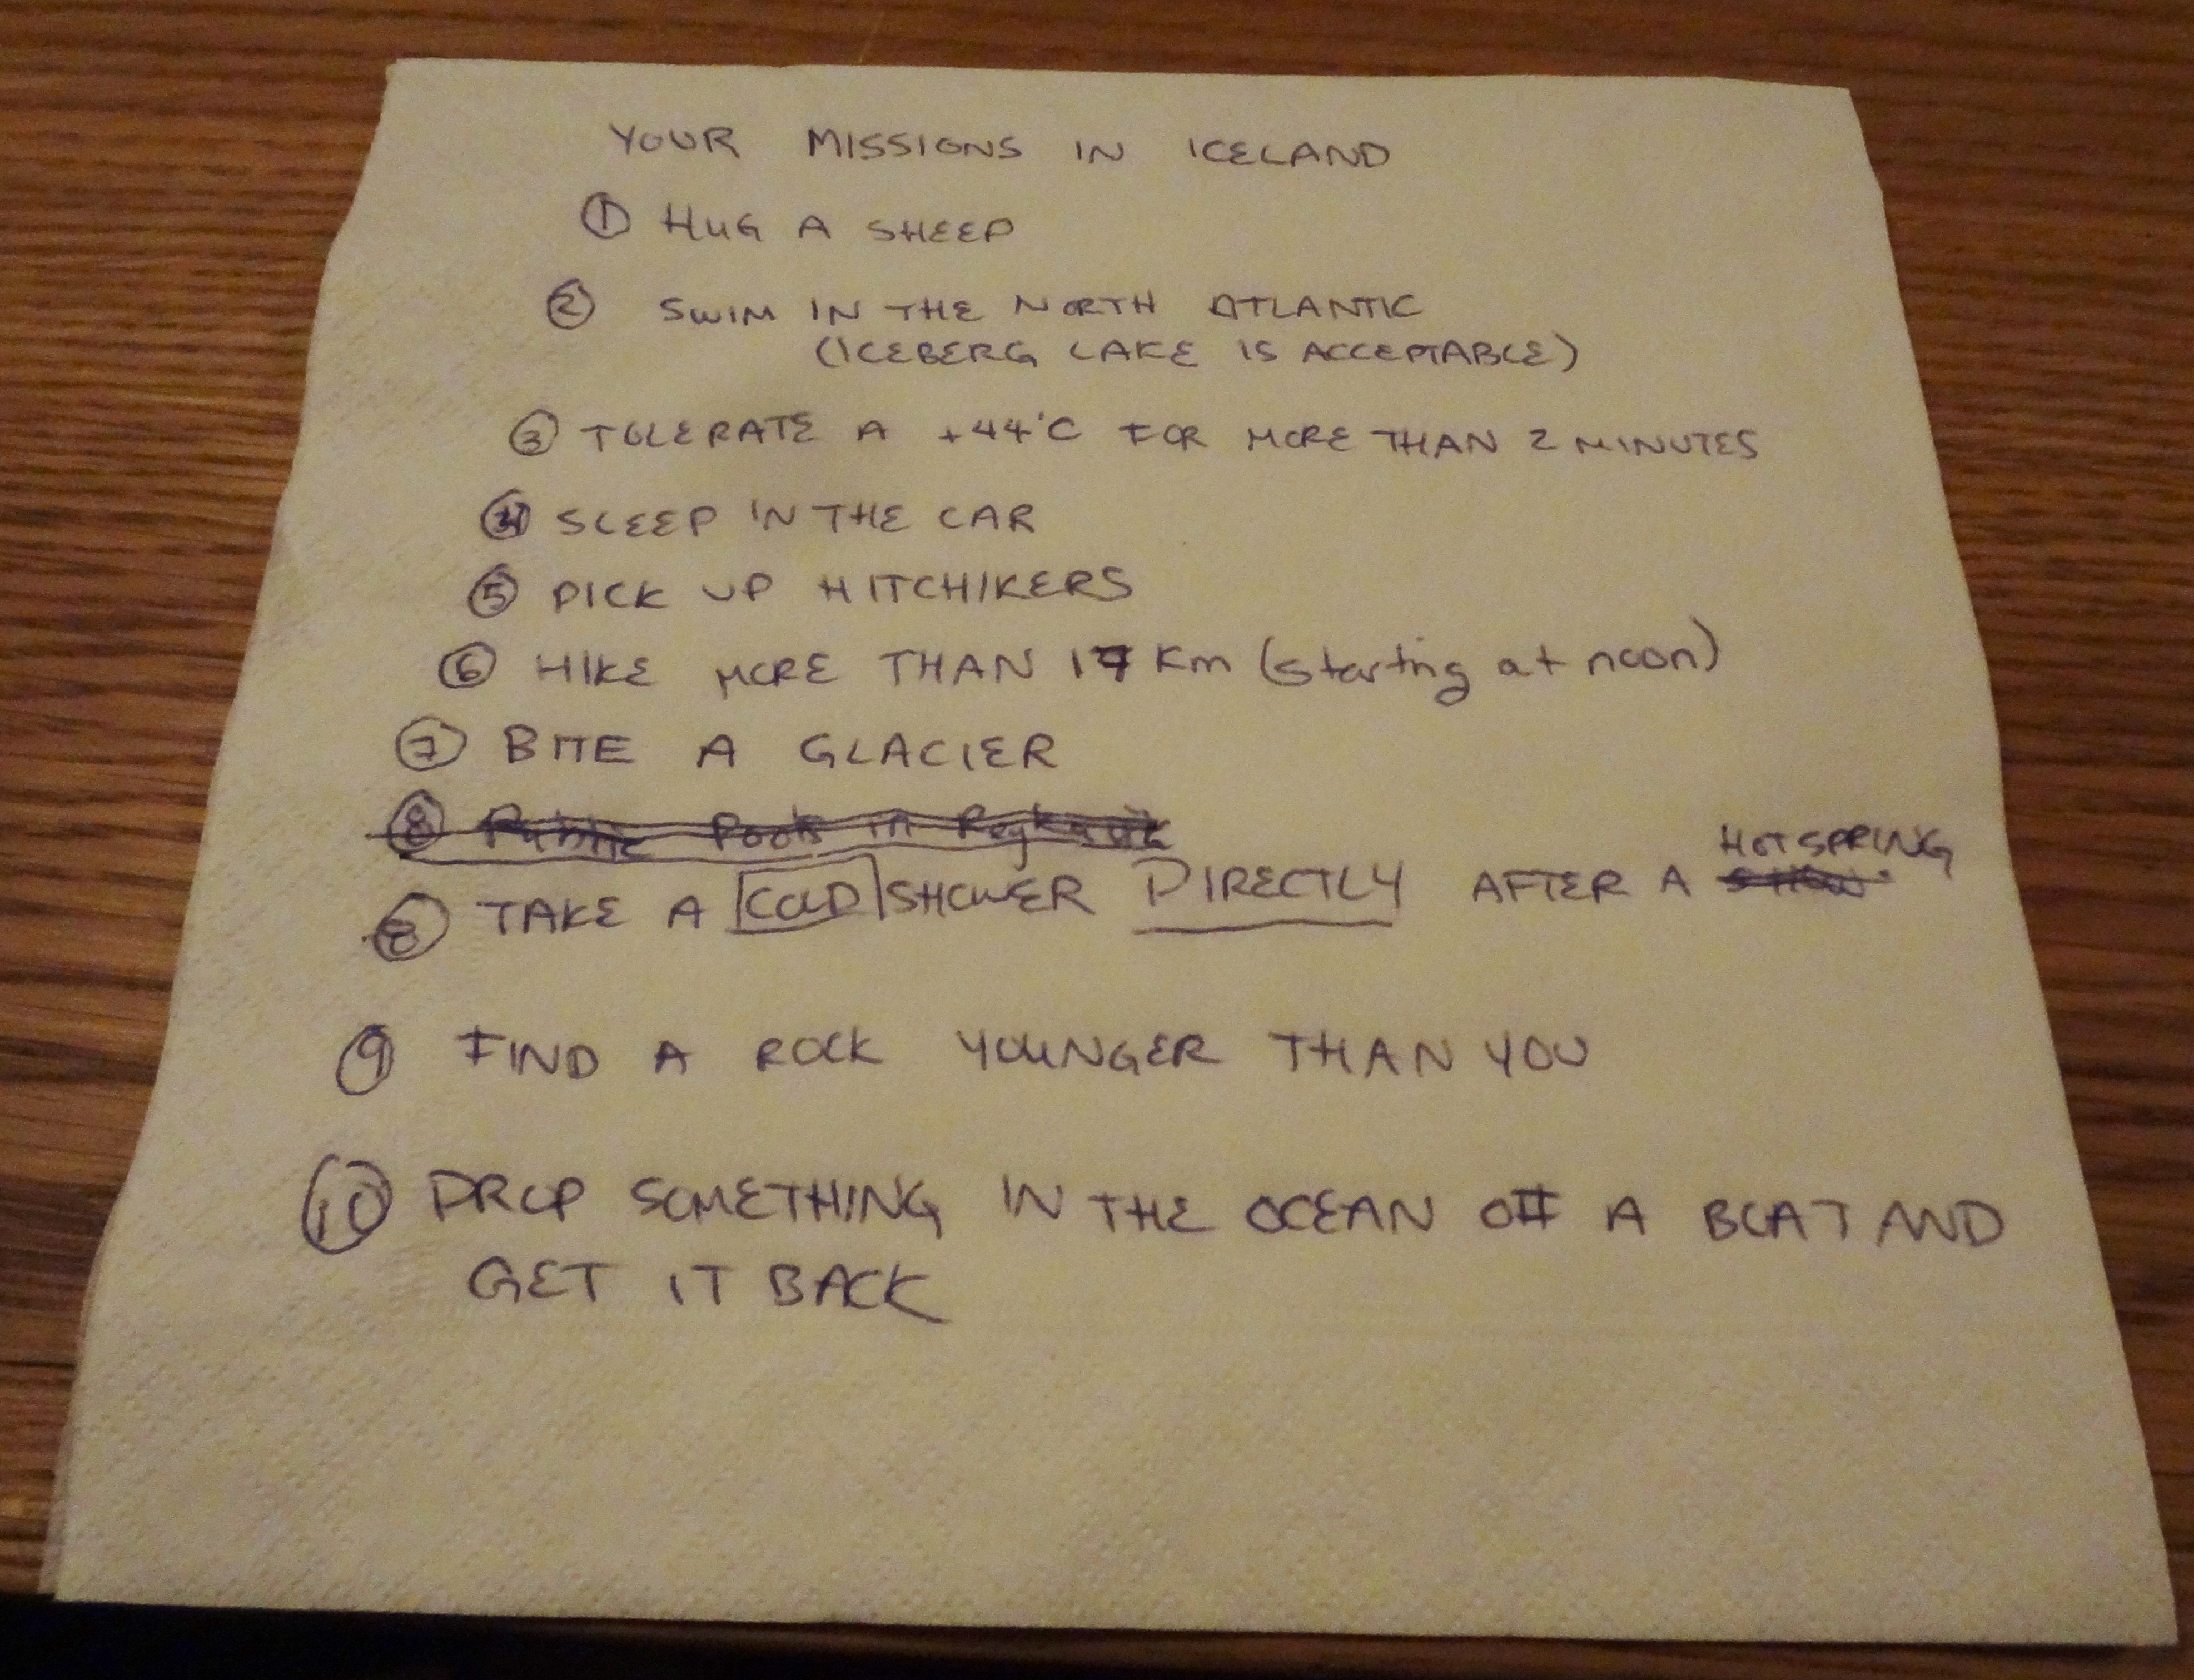 YOUR MISSIONS IN ICELAND
① HUG A SHEEP
② SWIM IN THE NORTH ATLANTIC
(ICEBERG LAKE IS ACCEPTABLE)
③ TOLERATE A +44°C FOR MORE THAN 2 MINUTES
④ SLEEP IN THE CAR
⑤ PICK UP HITCHIKERS
⑥ HIKE MORE THAN 17 Km (starting at noon)
⑦ BITE A GLACIER
⑧ Public Pools in
HOT SPRING
⑧ TAKE A COLD SHOWER DIRECTLY AFTER A
⑨ FIND A ROCK YOUNGER THAN YOU
⑩ DROP SOMETHING IN THE OCEAN OFF A BOAT AND
GET IT BACK